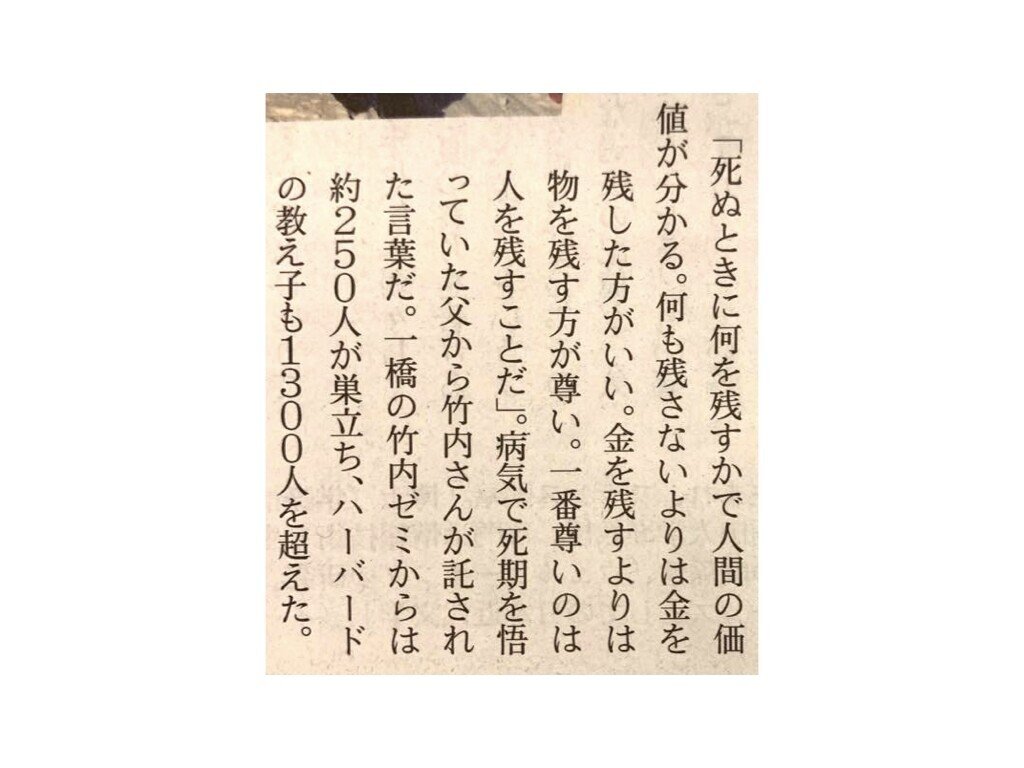 「死ぬときに何を残すかで人間の価
値が分かる。何も残さないよりは金を
残した方がいい。金を残すよりは
物を残す方が尊い。一番尊いのは
人を残すことだ」。病気で死期を悟
っていた父から竹内さんが託され
た言葉だ。一橋の竹内ゼミからは
約250人が巣立ち、ハーバード
の教え子も1300人を超えた。